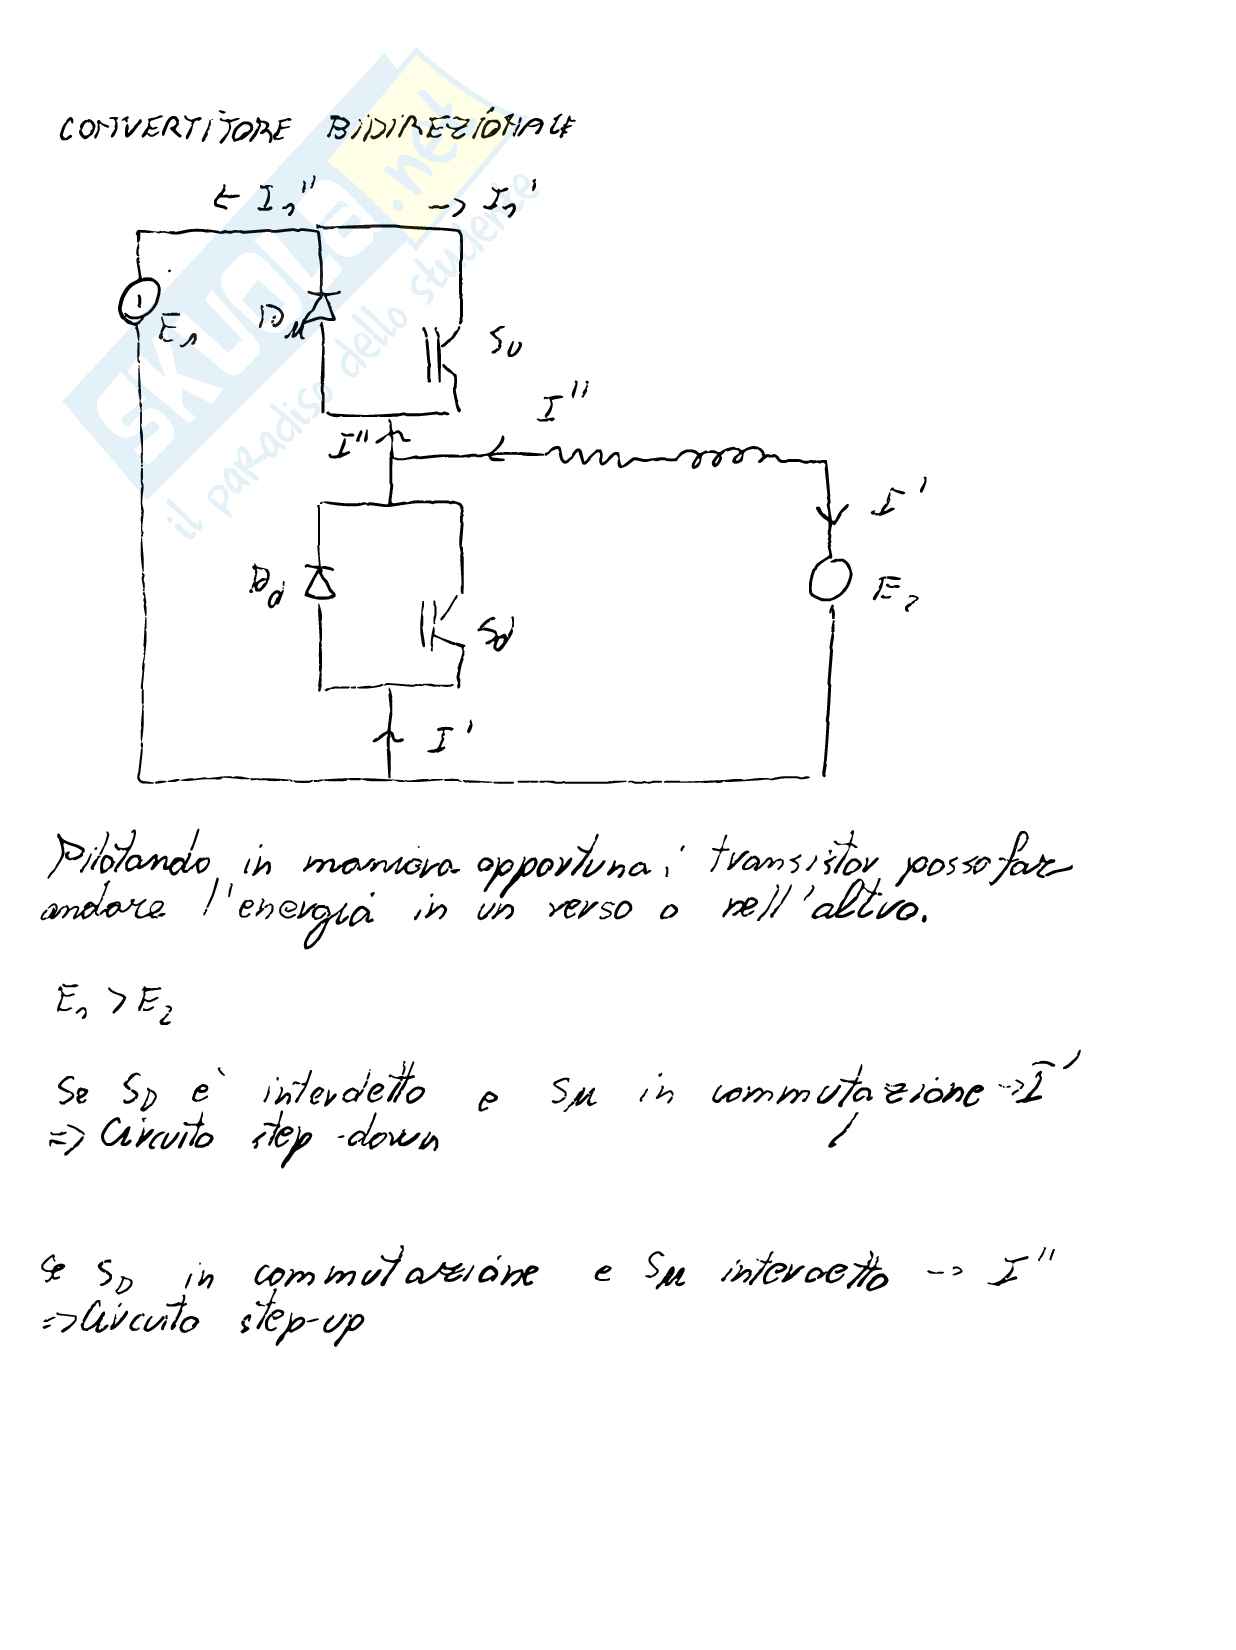 CONVERTITORE BIDIREZIONALE
← I₁'' → I₁'
E₁ Dᴍ Sᴜ
I''
I''
I'
D_d E₂
S_d
I'
Pilotando in maniera opportuna i transistor posso far
andare l'energia in un verso o nell'altro.
E₁ > E₂
Se S_D è interdetto e Sᴍ in commutazione → I'
=> Circuito step-down
Se S_D in commutazione e Sᴍ interdetto --> I''
=> Circuito step-up
SKUOLA.net
il paradiso dello studente